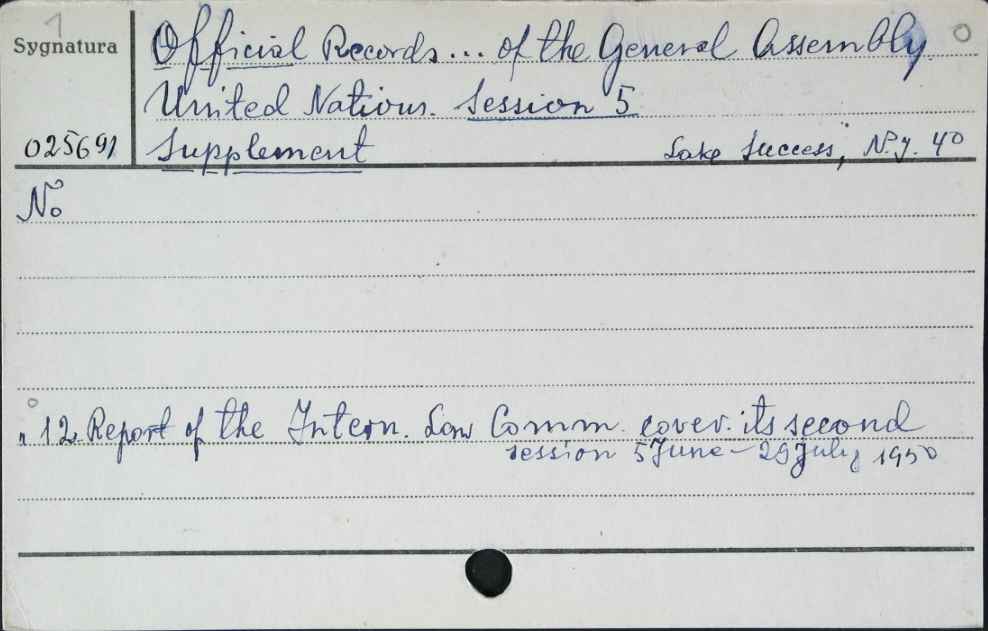 1
Sygnatura
Official Records... of the General Assembly.
United Nations. Session 5
025691
Supplement
Lake Success, N.y. 40
No
" 12. Report of the Intern. Law Comm. cover. its second
session 5 June - 29 July 1950